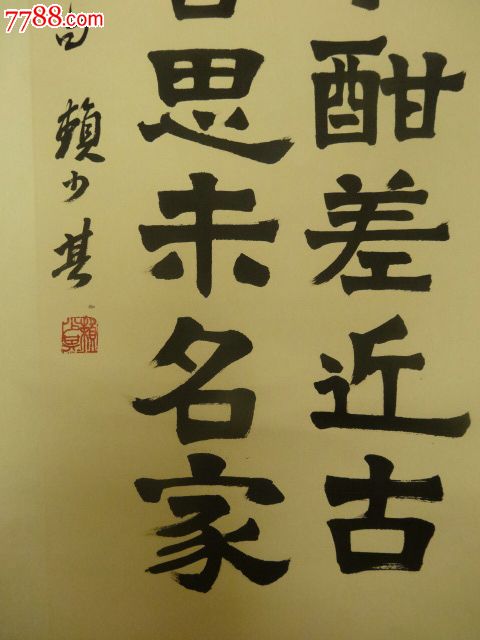 7788.com
酣差近古
思未名家
句 賴少其
賴少其